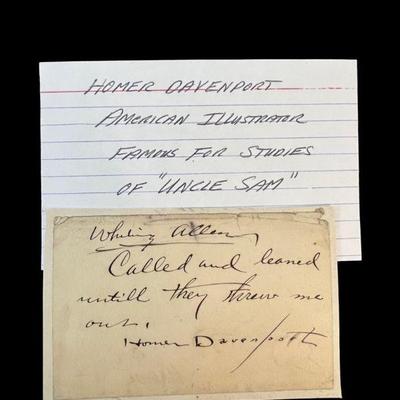 HOMER DAVENPORT
AMERICAN ILLUSTRATOR
FAMOUS FOR STUDIES
OF "UNCLE SAM"
Whiting Allen,
Called and leaned
untill they threw me
out.
Homer Davenport